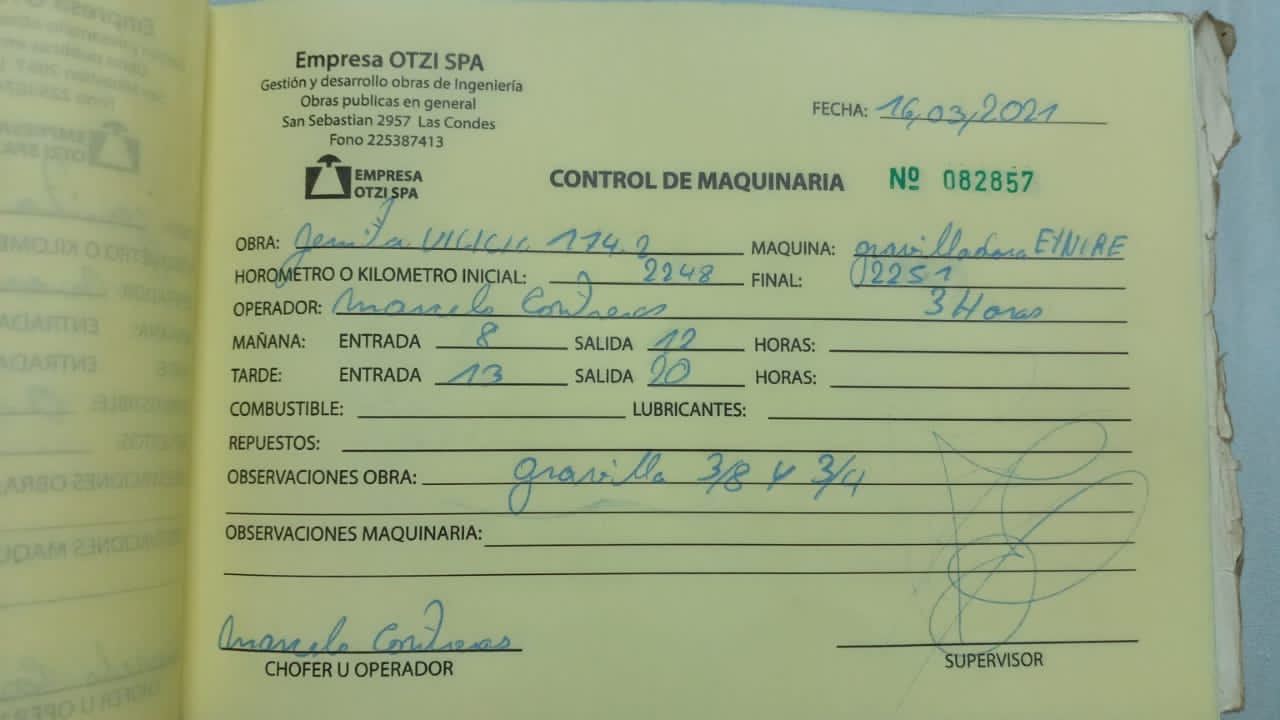 Empresa OTZI SPA
Gestión y desarrollo obras de Ingeniería
Obras publicas en general
San Sebastian 2957 Las Condes
Fono 225387413
EMPRESA
OTZI SPA
FECHA: 16,03,2021
CONTROL DE MAQUINARIA Nº 082857
OBRA: 174.2 MAQUINA: gravilladora
HOROMETRO O KILOMETRO INICIAL: 2248 FINAL: 2251
OPERADOR: Marcelo Contreras 3 Horas
MAÑANA: ENTRADA 8 SALIDA 12 HORAS:
TARDE: ENTRADA 13 SALIDA 20 HORAS:
COMBUSTIBLE: LUBRICANTES:
REPUESTOS:
OBSERVACIONES OBRA: gravilla 3/8 y 3/4
OBSERVACIONES MAQUINARIA:
Marcelo Contreras
CHOFER U OPERADOR
SUPERVISOR